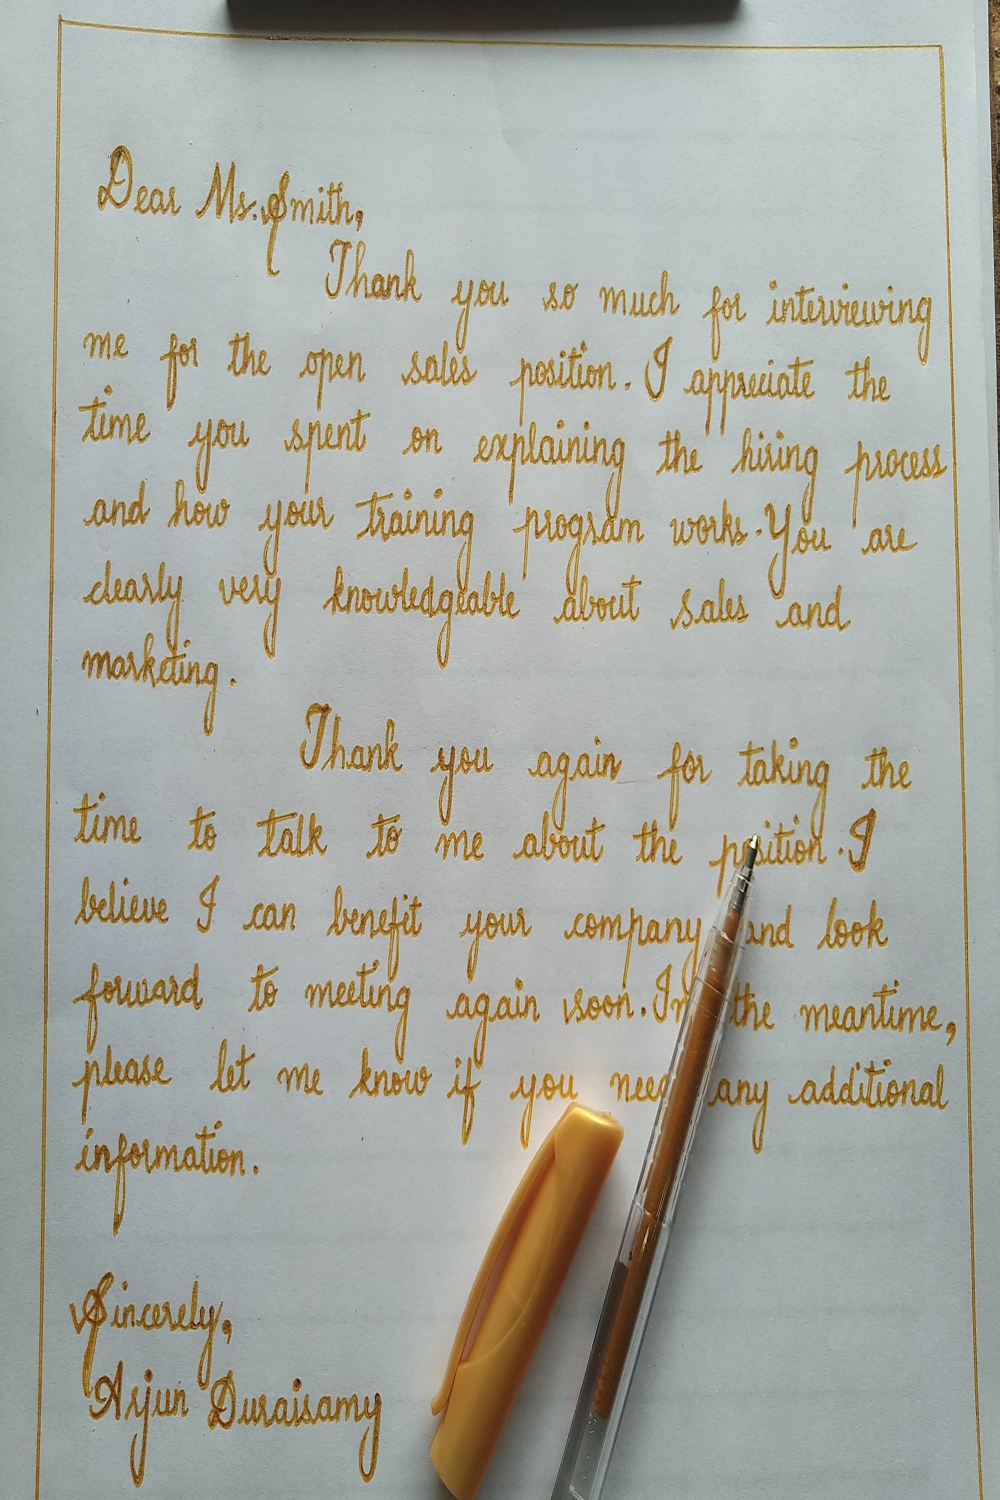 Dear Ms. Smith,
Thank you so much for interviewing
me for the open sales position. I appreciate the
time you spent on explaining the hiring process
and how your training program works. You are
clearly very knowledgeable about sales and
marketing.
Thank you again for taking the
time to talk to me about the position. I
believe I can benefit your company and look
forward to meeting again soon. In the meantime,
please let me know if you need any additional
information.
Sincerely,
Arjun Duraisamy